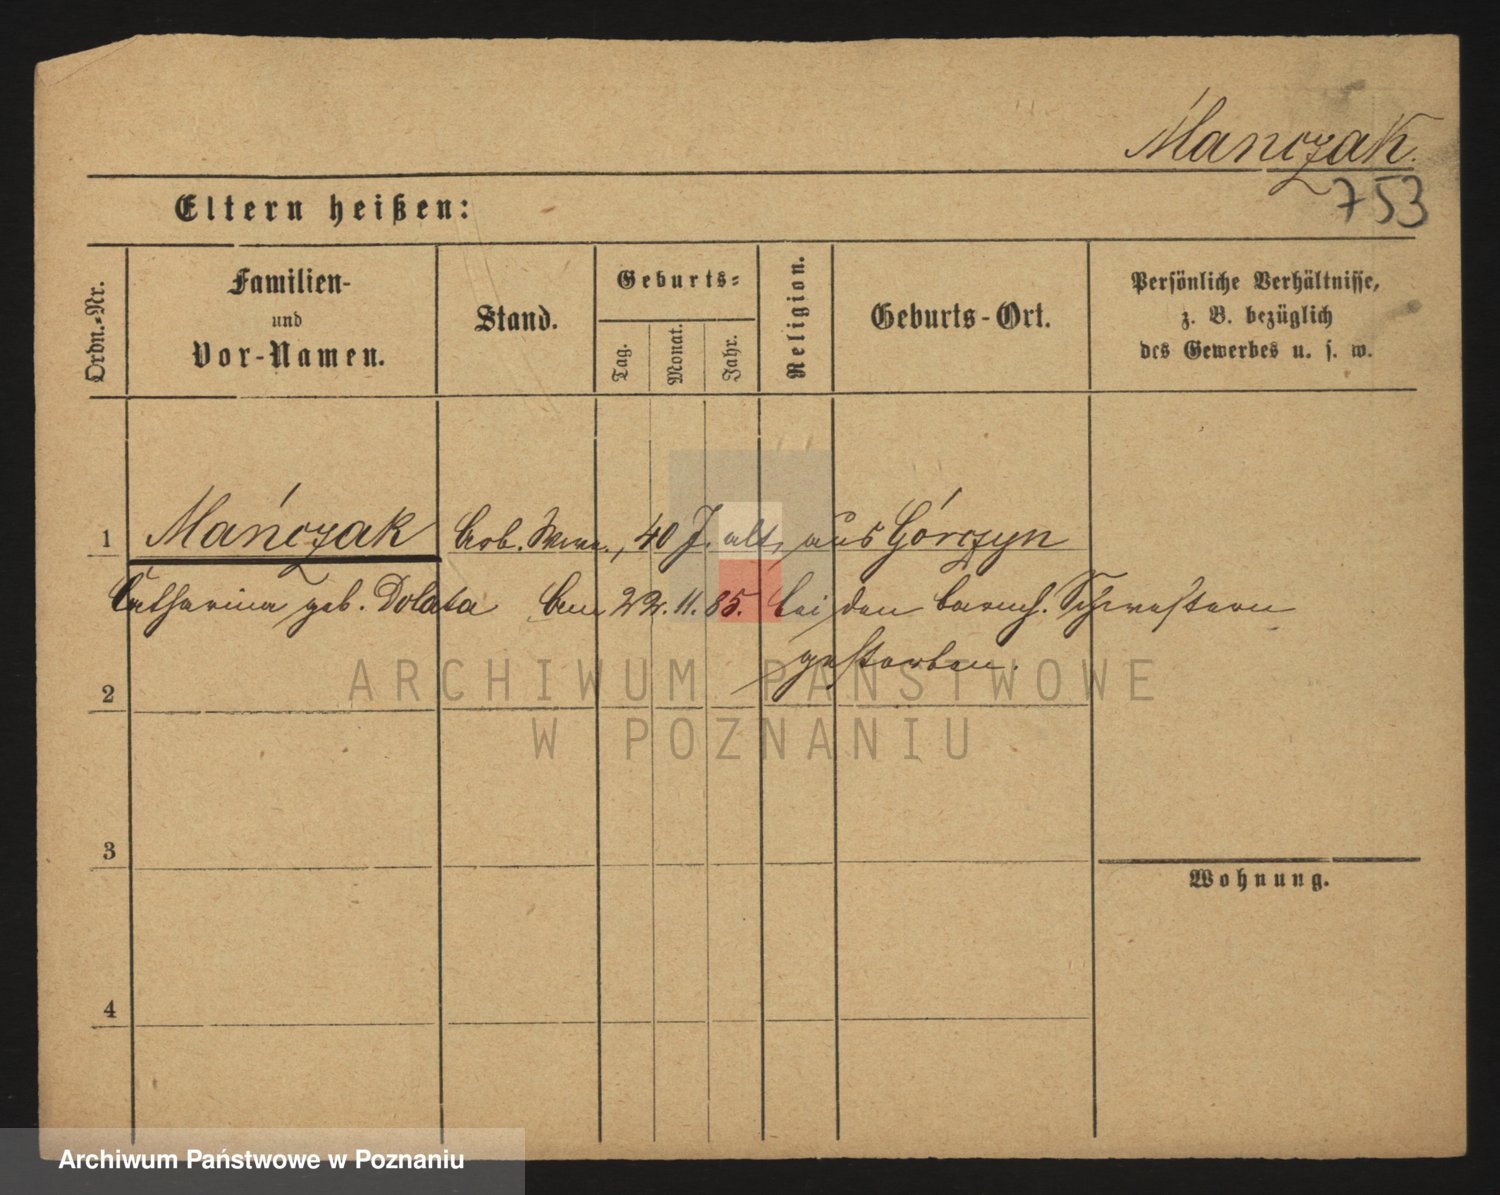 Mańczak.
753
Eltern heißen:
Ordn.-Nr.
Familien-
und
Vor-Namen.
Stand.
Geburts-
Tag.
Monat.
Jahr.
Religion.
Geburts-Ort.
Persönliche Verhältnisse,
z. B. bezüglich
des Gewerbes u. s. w.
1 Mańczak Arb. Wwe., 40 J. alt, aus Górczyn
Catharina geb. Dolata am 22.11.85. bei den barmh. Schwestern
gestorben.
2
3
Wohnung.
4
ARCHIWUM PAŃSTWOWE
W POZNANIU
Archiwum Państwowe w Poznaniu